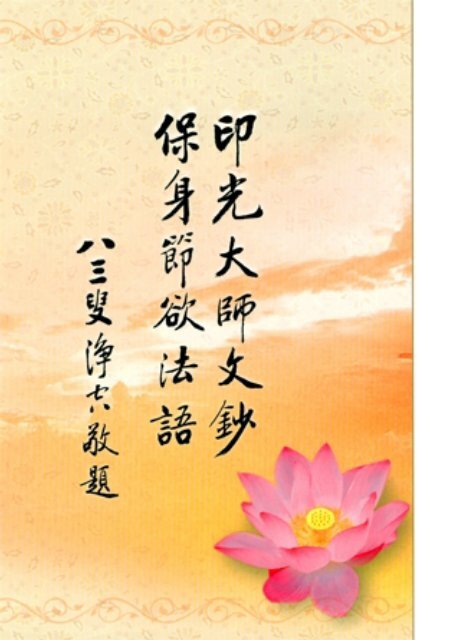 印光大師文鈔
保身節欲法語
八三叟淨空敬題